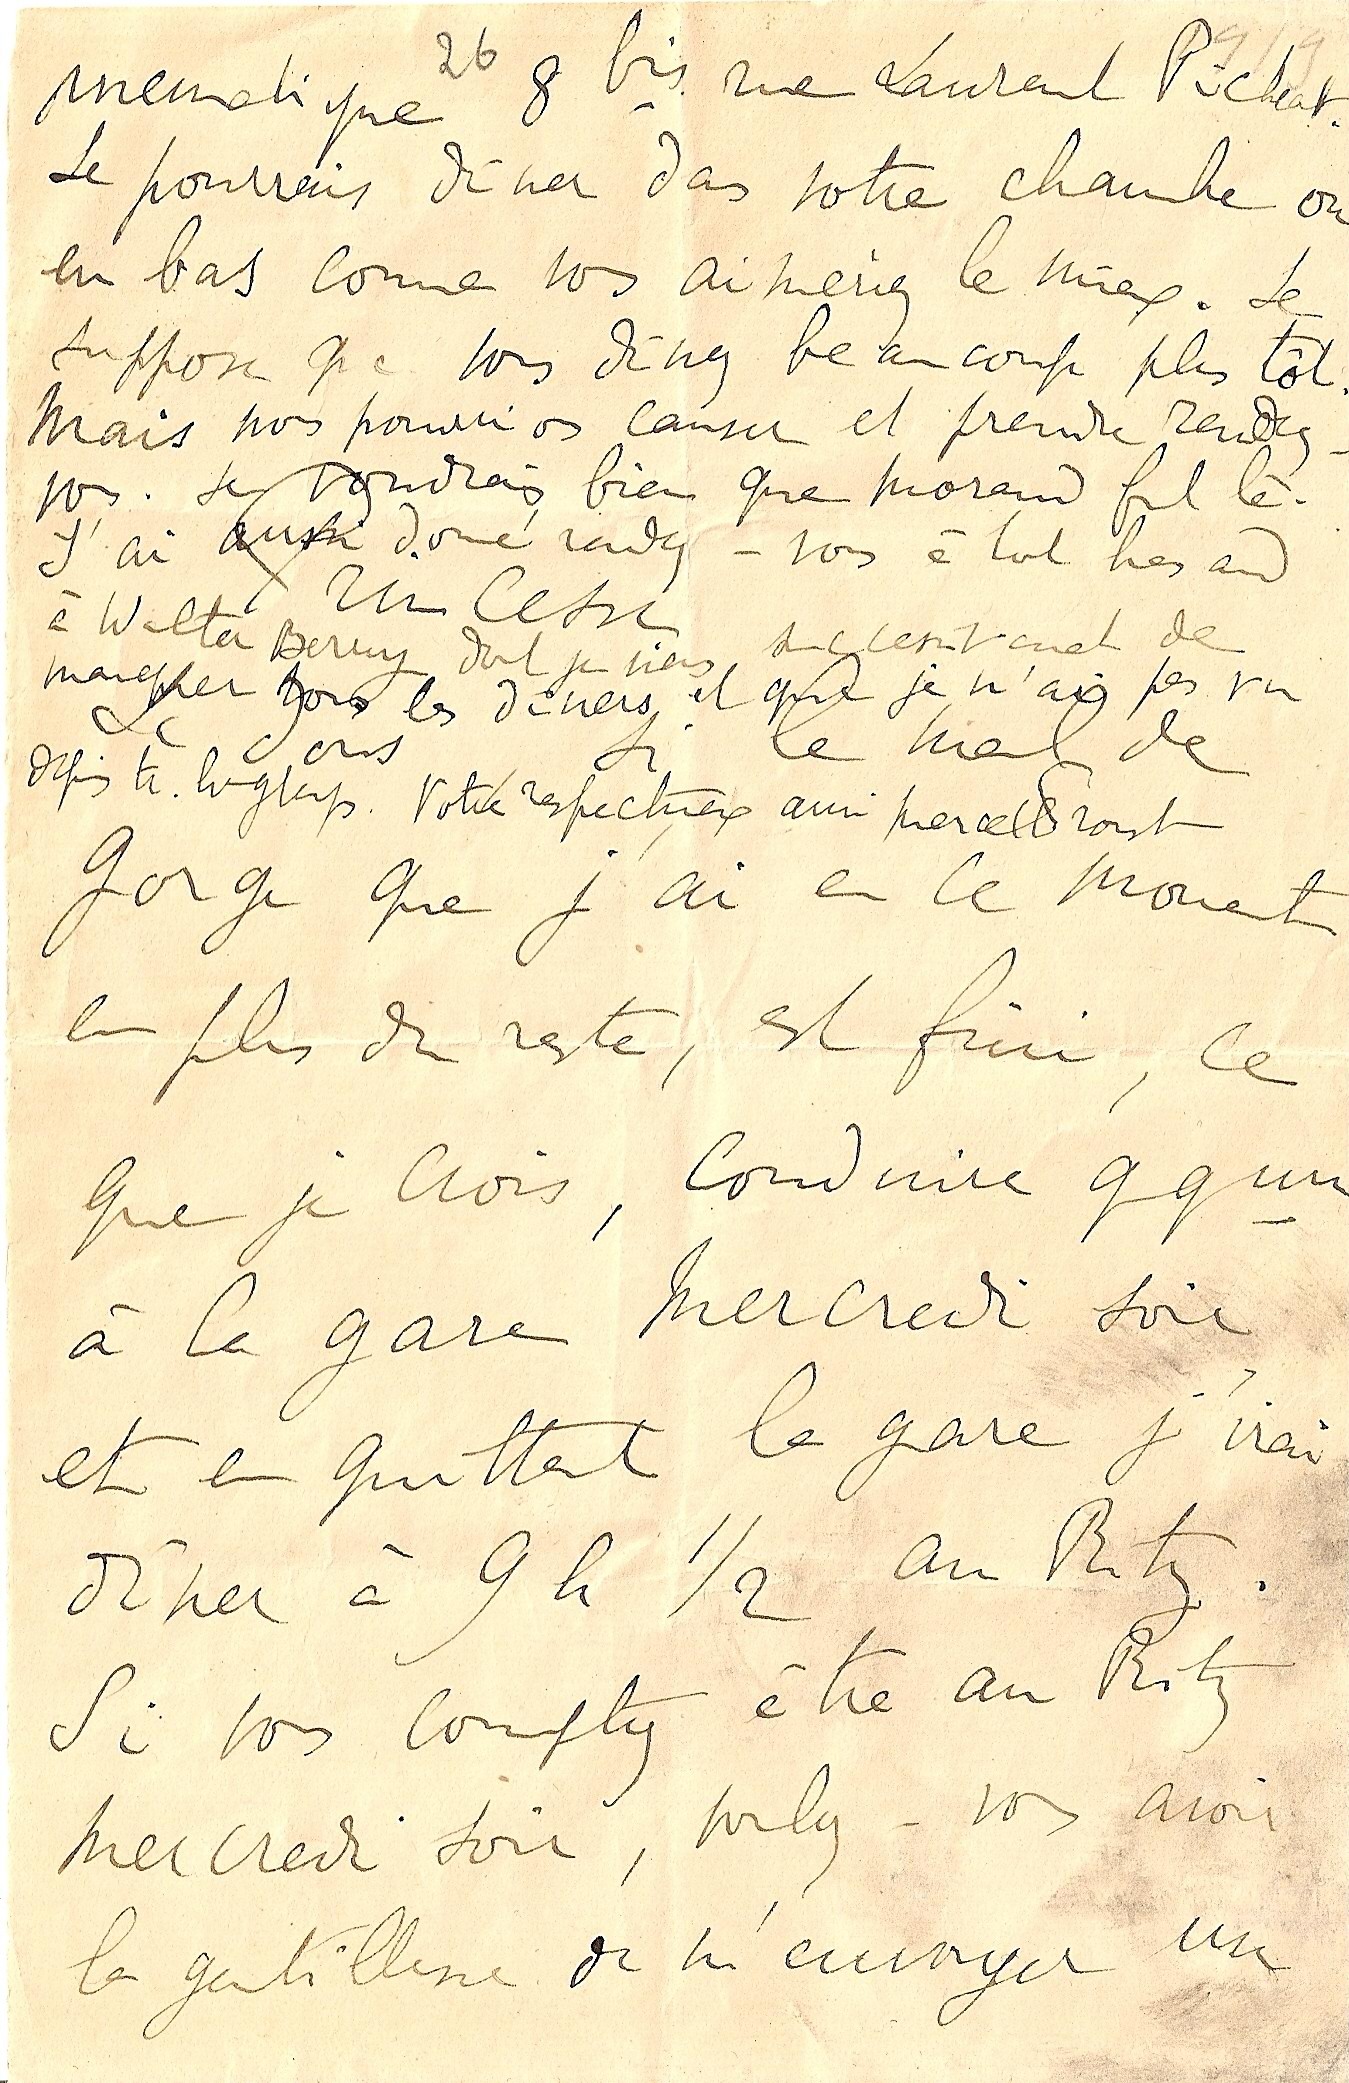 26
pneumatique 8 bis rue Laurent Pichat.
Je pourrais dîner dans votre chambre ou
en bas comme vous aimeriez le mieux. Je
suppose que vous dînez beaucoup plus tôt.
Mais nous pourrions causer et prendre rendez-
vous. Je voudrais bien que Morand fut là.
J'ai aussi donné rendez-vous à tout hasard
Princesse
à Walter Berry dont je viens successivement de
manquer tous les dîners et que je n'ai pas vu
Je dois si le mal de
depuis tr. longtemps. Votre respectueux ami Marcel Proust
gorge que j'ai en ce moment
en plus du reste, est fini, ce
que je crois, conduire qqun
à la gare Mercredi soir
et en quittant la gare j'irai
dîner à 9 h 1/2 au Ritz.
Si vous comptez être au Ritz
Mercredi soir, voulez-vous avoir
la gentillesse de m'envoyer un